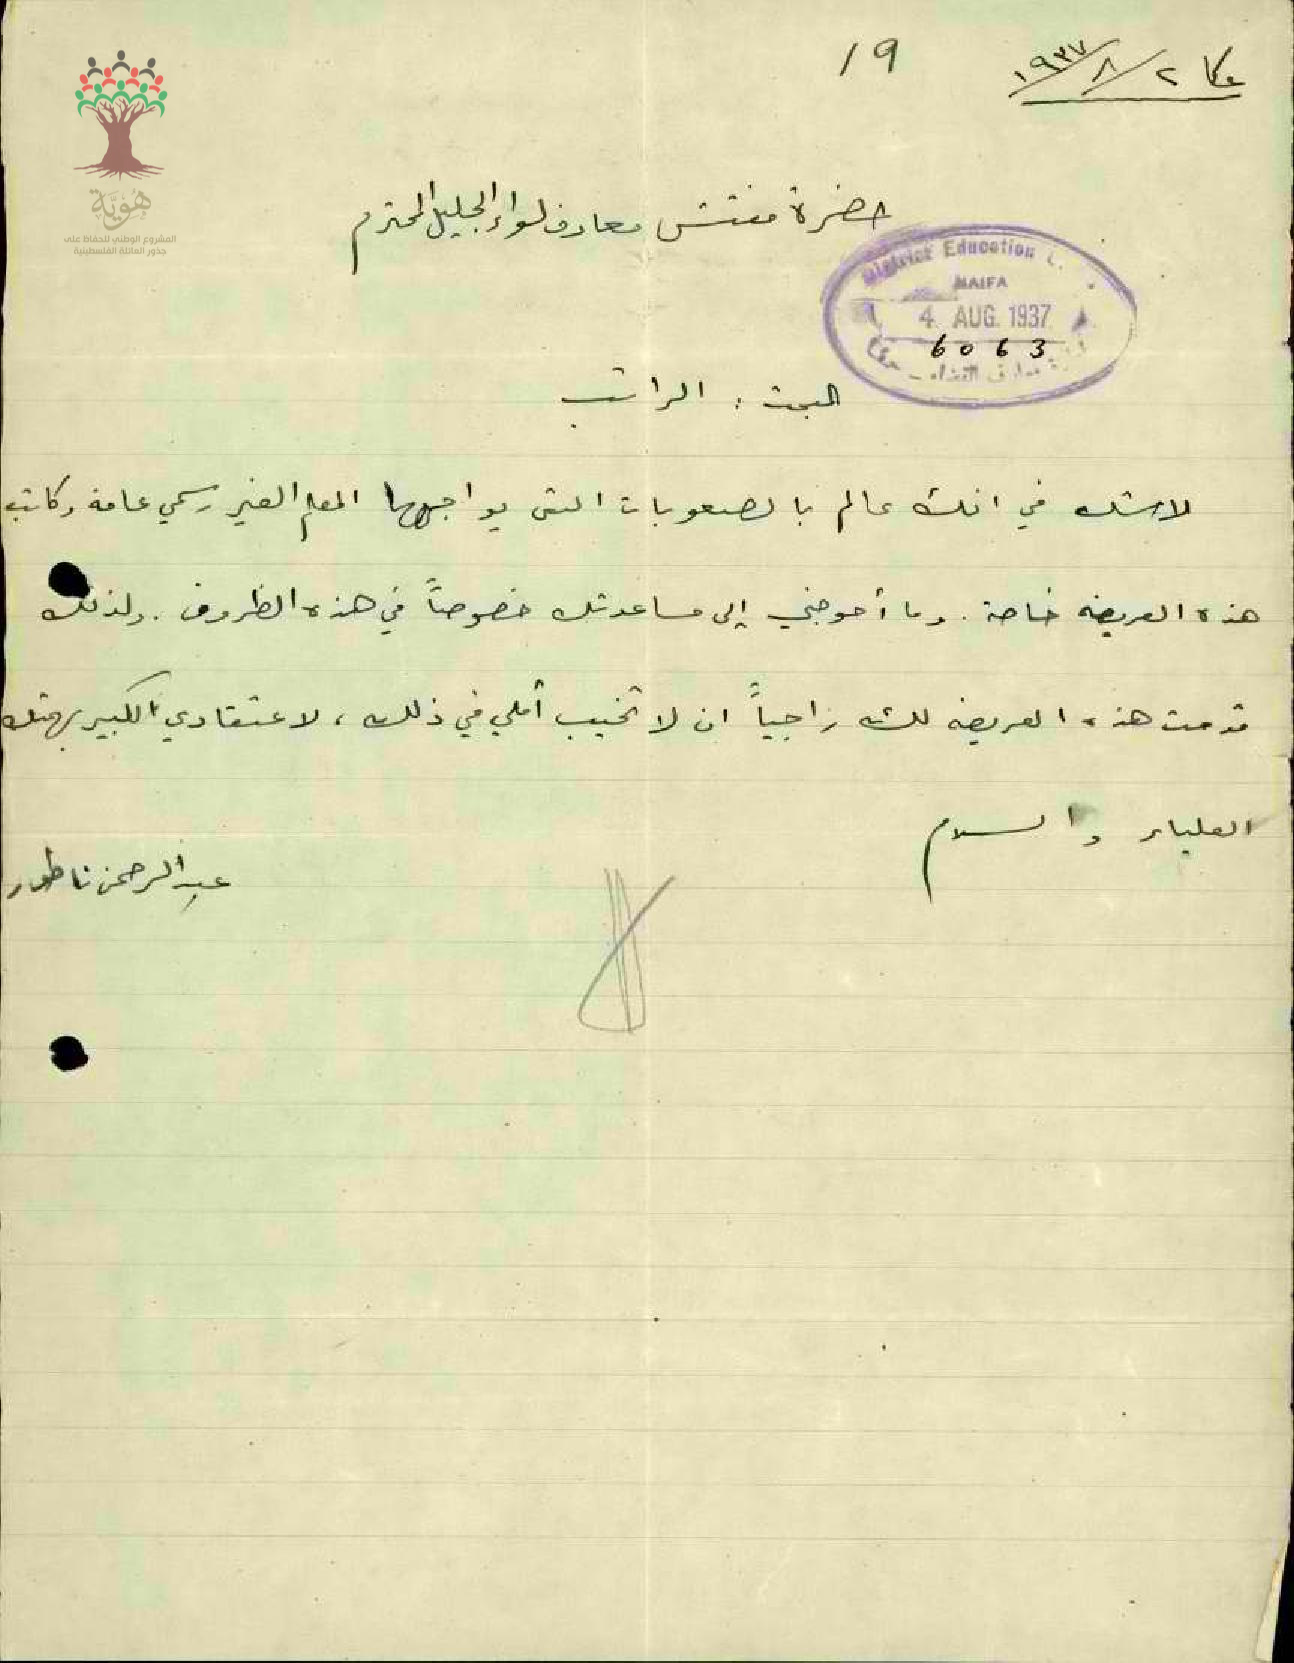 19
عكا ٢/٨/١٩٣٧
هوية
المشروع الوطني للحفاظ على
جذور العائلة الفلسطينية
حضرة مفتش معارف لواء الجليل المحترم
District Education
HAIFA
4 AUG. 1937
6063
معارف القضاء - حيفا
البحث : الراتب
لا شك في انك عالم بالصعوبات التي يواجهها المعلم الغير رسمي عامة وكاتب
هذه العريضة خاصة . وما أحوجني إلى مساعدتك خصوصاً في هذه الظروف . ولذلك
قدمت هذه العريضة لك راجياً ان لا تخيب أملي في ذلك ، لاعتقادي الكبير بهمتك
العلياء والسلام
عبد الرحمن ناطور